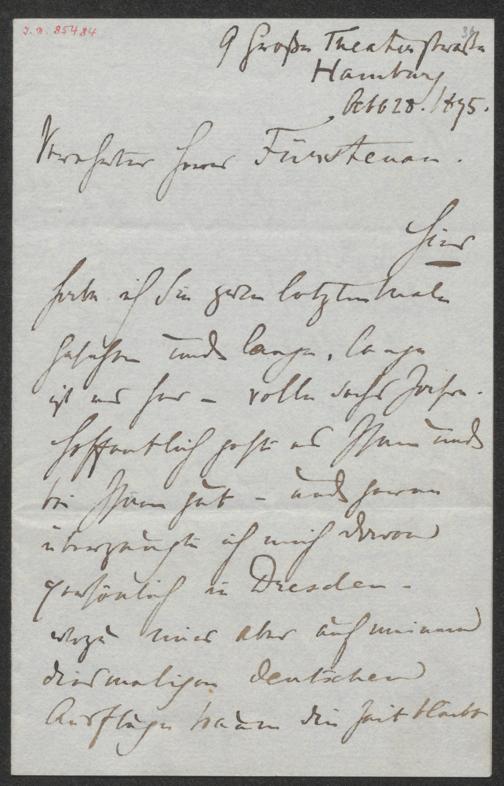 J. N. 85484
36
9 Große Theaterstraße
Hamburg
Octb 28. 1875.
Verehrter Herr Fürstenau.
Hier
habe ich Sie zum letztenmale
gesehen und lange, lange
ist es her – volle sechs Jahre.
Hoffentlich geht es Ihnen und
bei Ihnen gut – und gerne
überzeugte ich mich davon
persönlich in Dresden –
wozu mir aber auf meinem
diesmaligen deutschen
Ausfluge kaum die Zeit bleibt